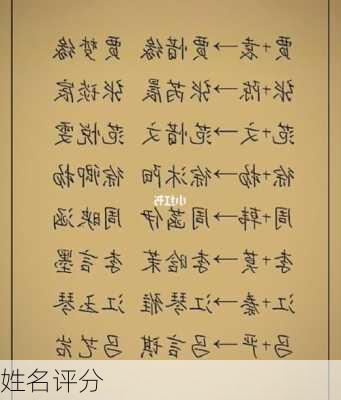 贾+袁→贾惜缘 贾梦缘
张+陈→张芮晨 张琰宸
范+文→范惜文 范悦雯
徐+杨→徐沐阳 徐卿杨
小红书
周+韩→周菡伊 周映涵
李+莫→李晗茉 李言墨
江+秦→江琴雅 江玉琴
吕+平→吕言祺 吕艺
姓名评分